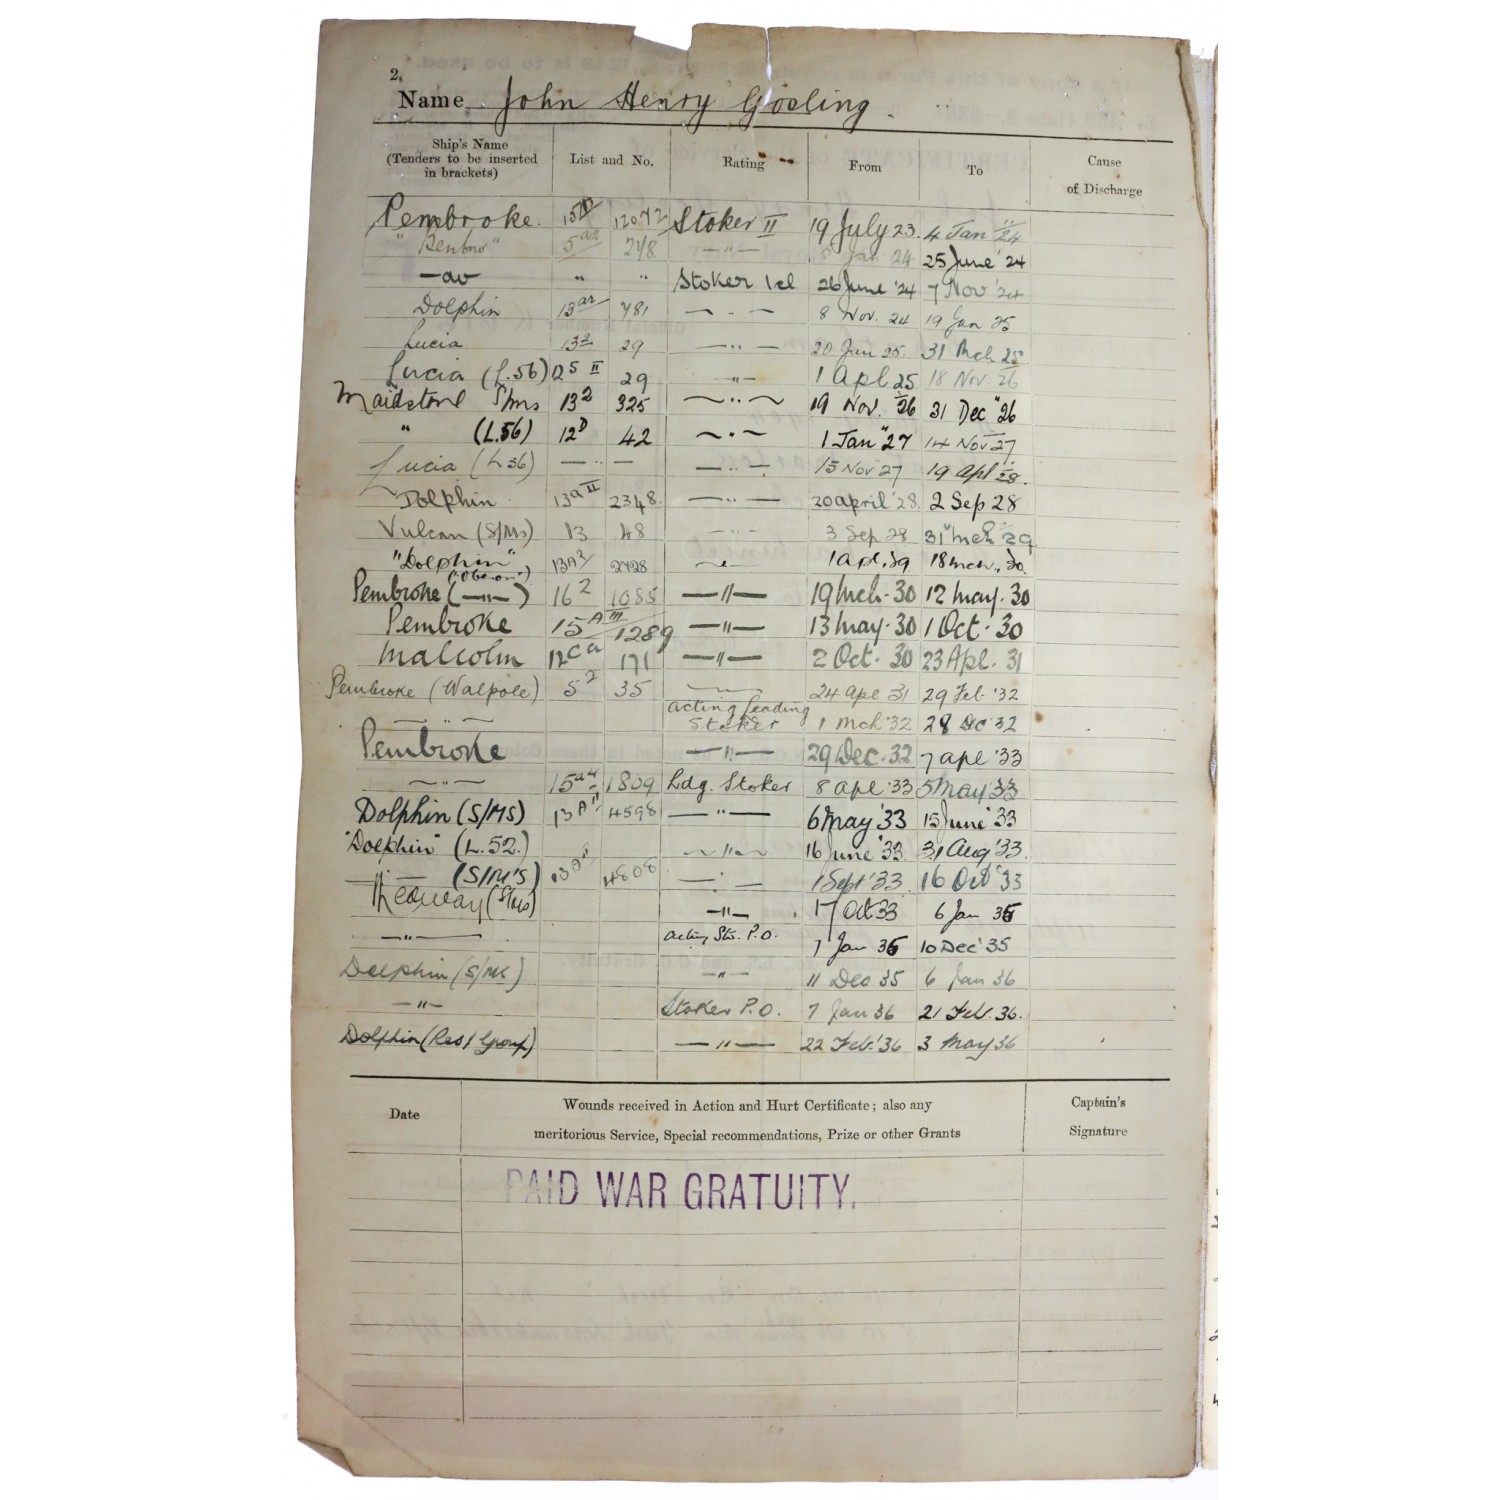 2.
Name John Henry Gosling.
Ship's Name (Tenders to be inserted in brackets) List and No. Rating From To Cause of Discharge
Pembroke. 15 12072 Stoker II 19 July 23. 4 Jan 24
"Benbow" 5 a2 248 —"— 5 Jan 24 25 June '24
—do— " " Stoker 1cl 26 June '24 7 Nov '24
Dolphin 13 781 — " — 8 Nov. 24 19 Jan 25
Lucia 13 29 — " — 20 Jan 25. 31 Mch 25
Lucia (L.56) 12 5 II 29 —"— 1 Apl 25 18 Nov 26
Maidstone S/ms 13 2 325 — " — 19 Nov. 26 31 Dec "26
" (L.56) 12 D 42 — " — 1 Jan "27 14 Nov 27
Lucia (L 56) — " — — " — 15 Nov 27 19 Apl 28.
Dolphin 13 a II 2348 — " — 20 april '28. 2 Sep 28
Vulcan (S/Ms) 13 48 — " — 3 Sep 28 31 mch 29
"Dolphin" 2428 1 apl, 29 18 mch, 30.
(Oberon)
Pembroke (—"—) 16 2 1085 —"— 19 Mch. 30 12 May. 30
Pembroke 15 A III 1289 —"— 13 May. 30 1 Oct. 30
Malcolm 12 171 —"— 2 Oct. 30 23 Apl. 31
Pembroke (Walpole) 5 2 35 24 Apl 31 29 Feb '32
— " — acting leading Stoker 1 Mch '32 28 Dec 32
Pembroke —"— 29 Dec. 32 7 apl '33
—"— 15 a4 1809 Ldg. Stoker 8 apl '33 5 May '33
Dolphin (S/MS) 13 A 4598 —"— 6 May '33 15 June '33
"Dolphin" (L.52.) —"— 16 June '33. 31 Aug '33.
—"— (S/M'S) 13 A 4808 1 Sept '33 16 Oct '33
Medway (S/Ms) —"— 17 Oct 33 6 Jan 35
—"— acting Sto. P.O. 7 Jan 35 10 Dec '35
Dolphin (S/Ms) —"— 11 Dec 35 6 Jan 36
—"— Stoker P.O. 7 Jan 36 21 Feb. 36.
Dolphin (Res/ Group) —"— 22 Feb. '36 3 May 36
Date Wounds received in Action and Hurt Certificate; also any meritorious Service, Special recommendations, Prize or other Grants Captain's Signature
PAID WAR GRATUITY.